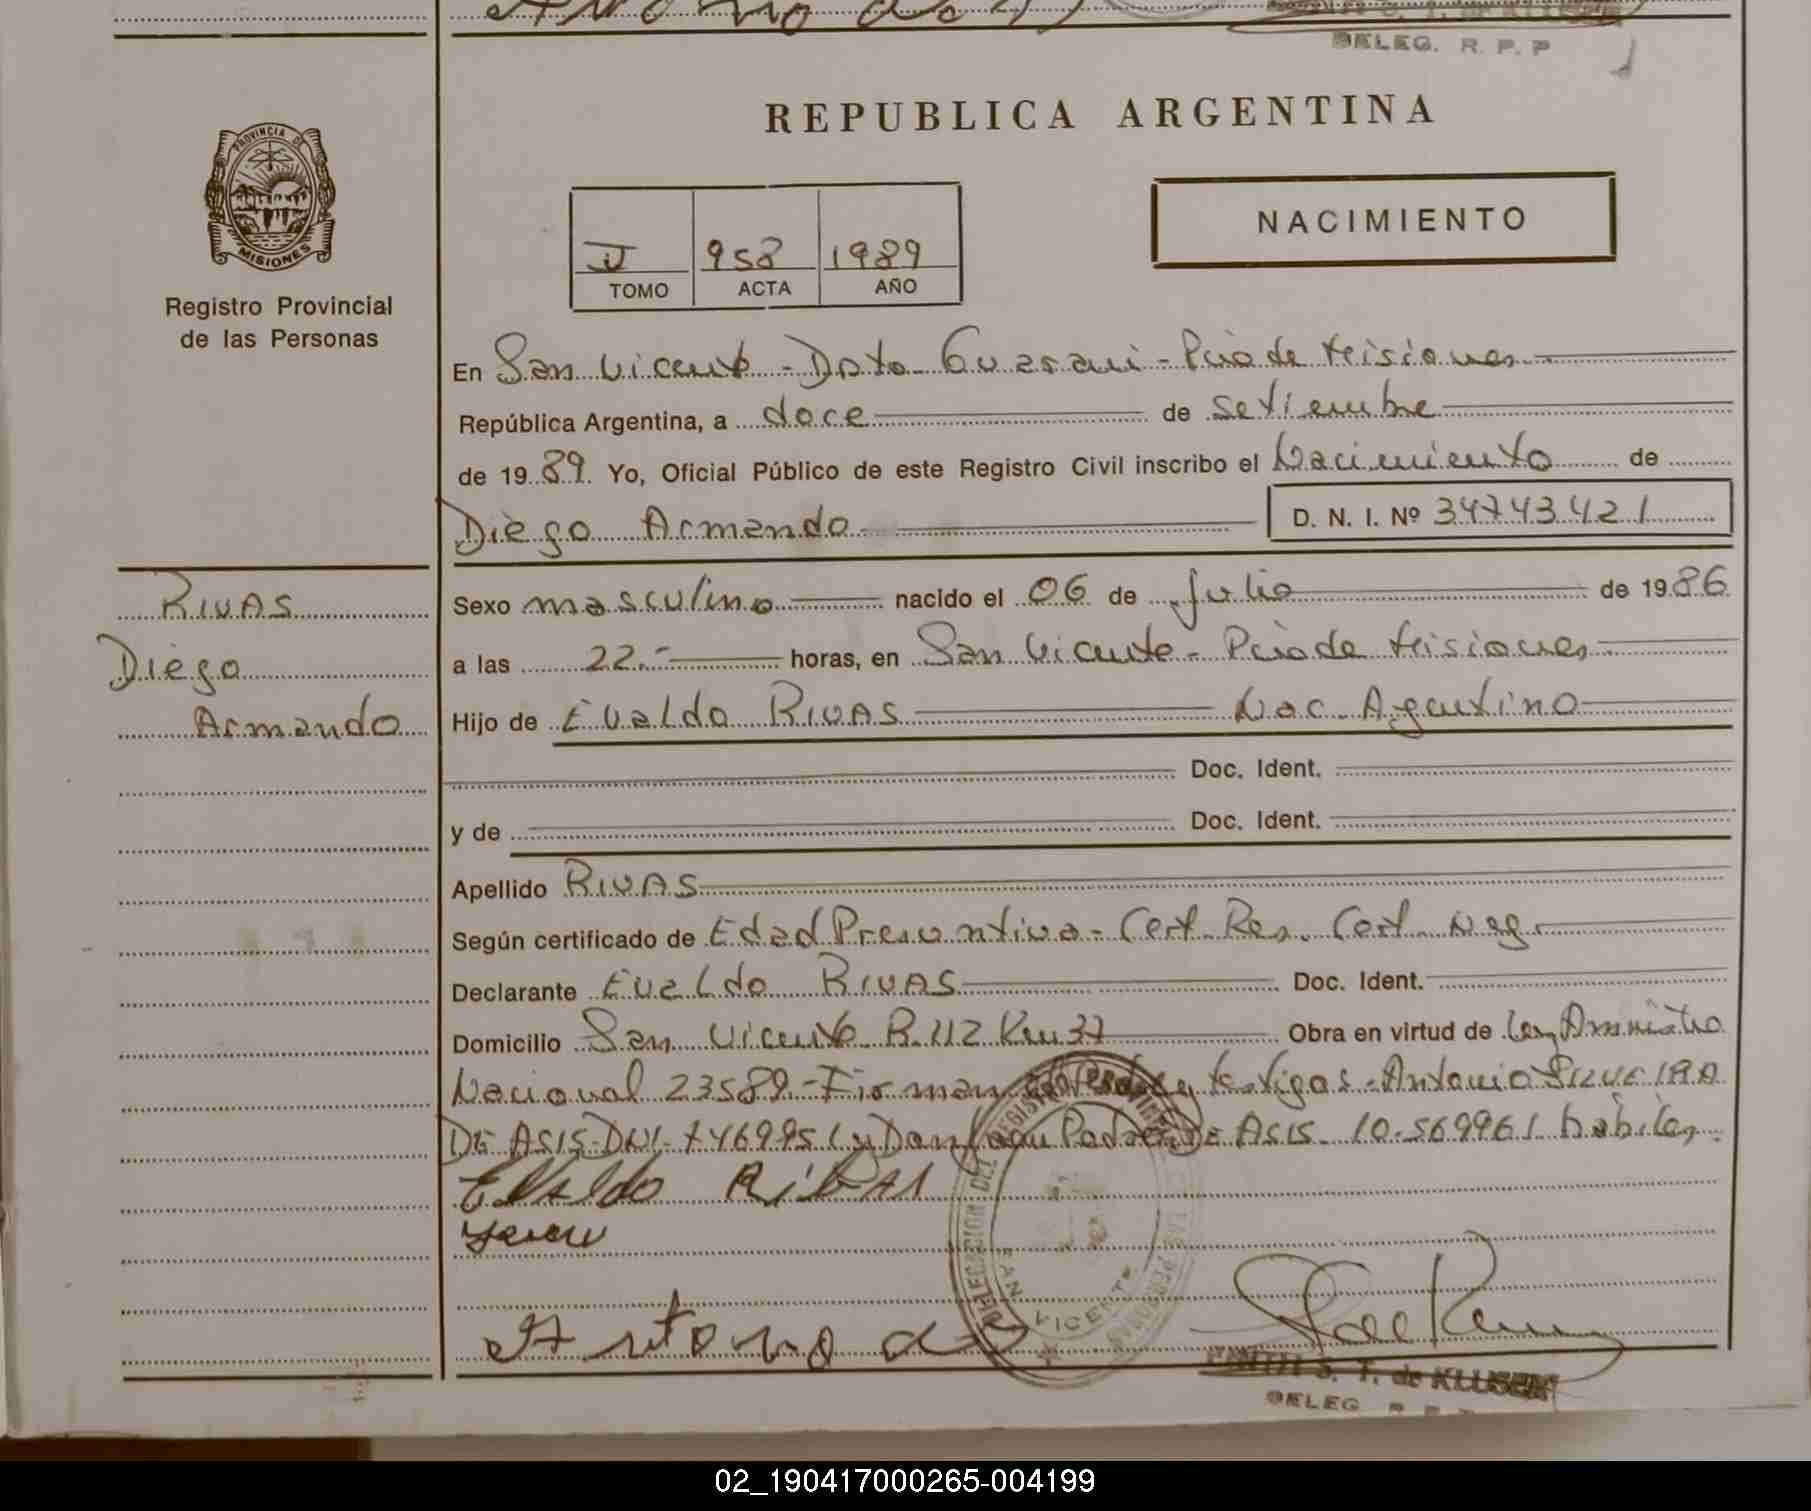 DELEG. R. P. P
PROVINCIA DE
MISIONES
Registro Provincial
de las Personas
REPUBLICA ARGENTINA
NACIMIENTO
II 958 1989
TOMO ACTA AÑO
En San Vicente - Dpto Guarani - Pcia de Misiones
República Argentina, a doce de setiembre
de 1989. Yo, Oficial Público de este Registro Civil inscribo el Nacimiento de
Diego Armando D. N. I. Nº 34743421
RIVAS
Diego
Armando
Sexo masculino nacido el 06 de Julio de 1986
a las 22.- horas, en San Vicente - Pcia de Misiones
Hijo de Evaldo RIVAS Nac. Argentino
Doc. Ident.
y de Doc. Ident.
Apellido RIVAS
Según certificado de Edad Presuntiva - Cert. Res. Cert. Neg.
Declarante Evaldo RIVAS Doc. Ident.
Domicilio San Vicente R. 112 Km 37 Obra en virtud de Ley Amnistia
Nacional 23589.- Firman testigos - Antonio SILVEIRA
DE ASIS - DNI - 7469951 y DE ASIS 10.569961 hábiles.
Evaldo Ribas
Antonio
DELEGACION DEL REGISTRO
SAN VICENTE
S. T. de KLUSEN
DELEG.
02_190417000265-004199